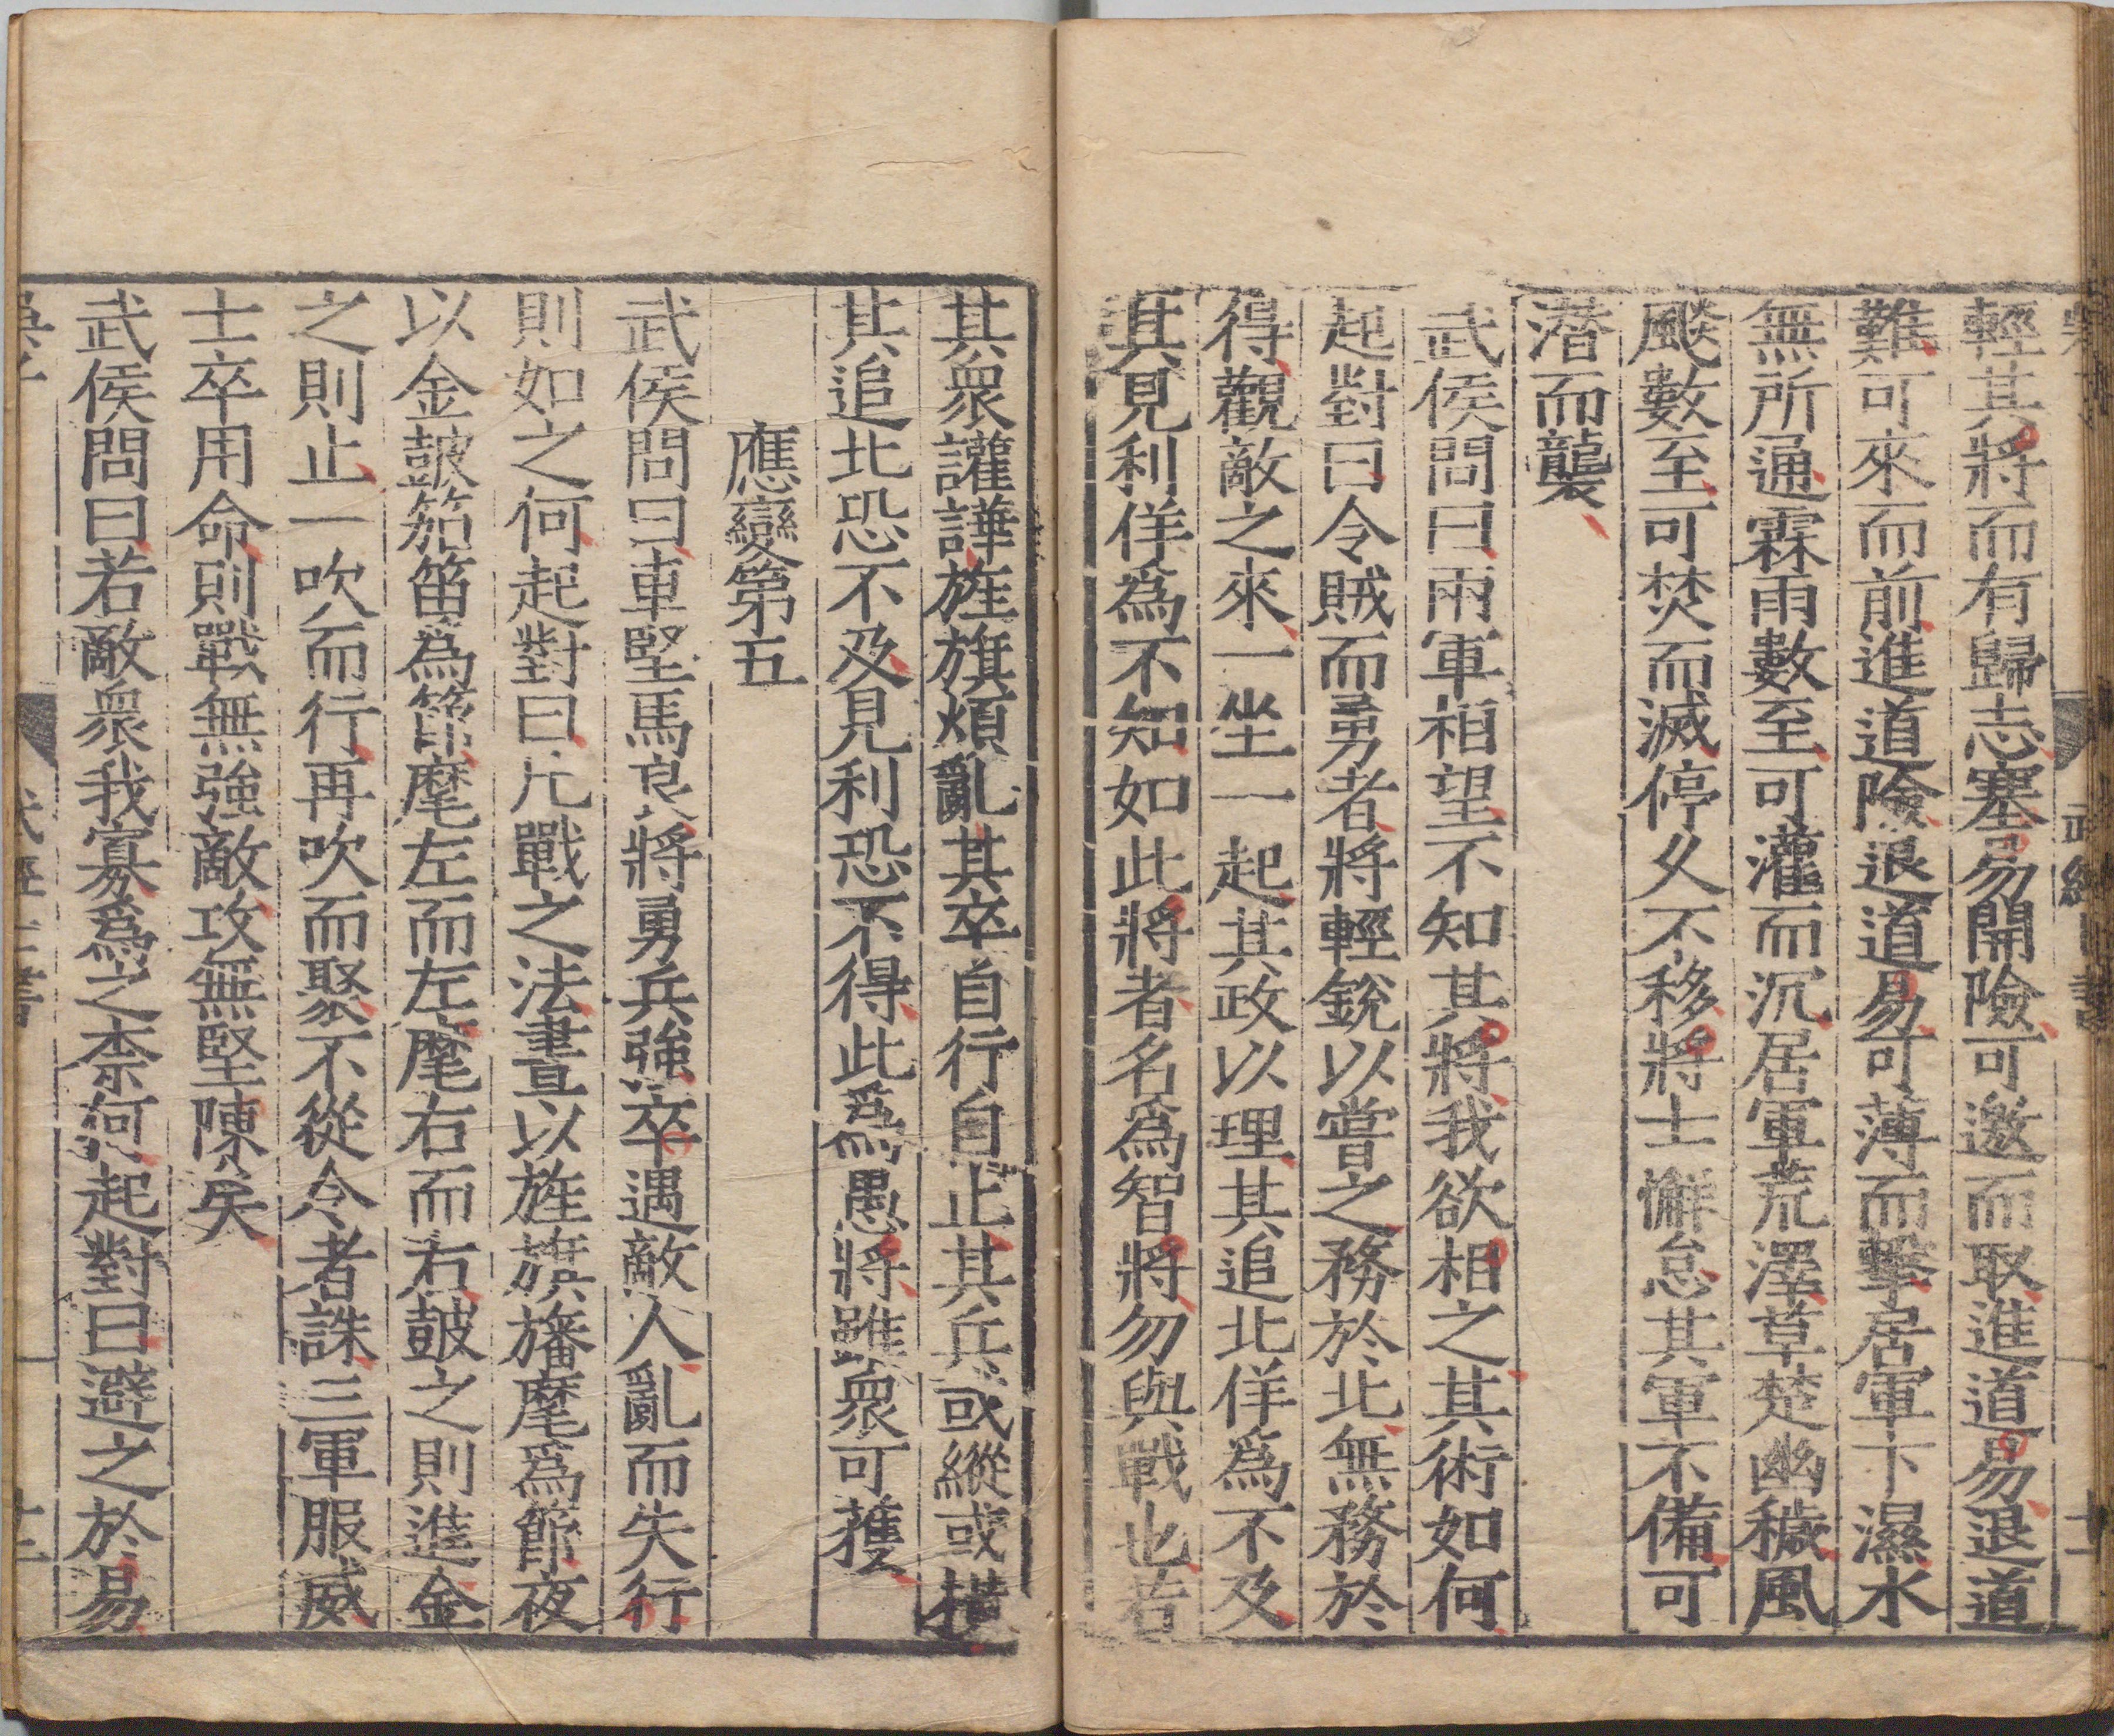 輕其將而有歸志塞易開險可邀而取進道易退道
難可來而前進道險退道易可薄而擊居軍下濕水
無所通霖雨數至可灌而沉居軍荒澤草楚幽穢風
飈數至可焚而滅停久不移將士懈怠其軍不備可
潛而襲
武侯問曰兩軍相望不知其將我欲相之其術如何
起對曰令賊而勇者將輕銳以嘗之務於北無務於
得觀敵之來一坐一起其政以理其追北佯為不及
其見利佯為不知如此將者名為智將勿與戰也若
其眾讙譁旌旗煩亂其卒自行自止其兵或縱或橫
其追北恐不及見利恐不得此為愚將雖眾可獲
應變第五
武侯問曰車堅馬良將勇兵強卒遇敵人亂而失行
則如之何起對曰凡戰之法晝以旌旗旛麾為節夜
以金鼓笳笛為節麾左而左麾右而右鼓之則進金
之則止一吹而行再吹而聚不從令者誅三軍服威
士卒用命則戰無強敵攻無堅陳矣
武侯問曰若敵眾我寡為之柰何起對曰避之於易